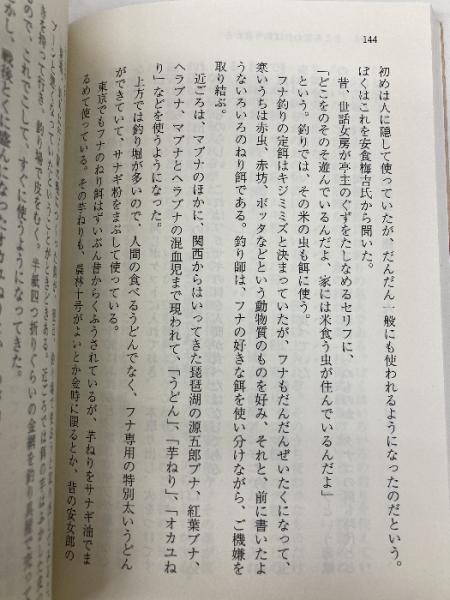 144
初めは人に隠して使っていたが、だんだん一般にも使われるようになったのだという。
ぼくはこれを安食梅吉氏から聞いた。
昔、世話女房が亭主のぐずをたしなめるセリフに、
「どこをのそのそ遊んでいるんだよ、家には米食う虫が住んでいるんだよ」
という。釣りでは、その米の虫も餌に使う。
フナ釣りの定餌はキジミミズと決まっていたが、フナもだんだんぜいたくになって、
寒いうちは赤虫、赤坊、ボッタなどという動物質のものを好み、それと、前に書いたよ
うないろいろのねり餌である。釣り師は、フナの好きな餌を使い分けながら、ご機嫌を
取り結ぶ。
近ごろは、マブナのほかに、関西からはいってきた琵琶湖の源五郎ブナ、紅葉ブナ、
ヘラブナ、マブナとヘラブナの混血児まで現われて、「うどん」、「芋ねり」、「オカユね
り」などを使うようになった。
上方では釣り堀が多いので、人間の食べるうどんでなく、フナ専用の特別太いうどん
ができていて、サナギ粉をまぶして使っている。
東京でもフナのねり餌はずいぶん昔からくふうされているが、芋ねりをサナギ油でま
るめて使っている。その芋ねりも、農林十号がよいとか金時に限るとか、昔の安女郎の